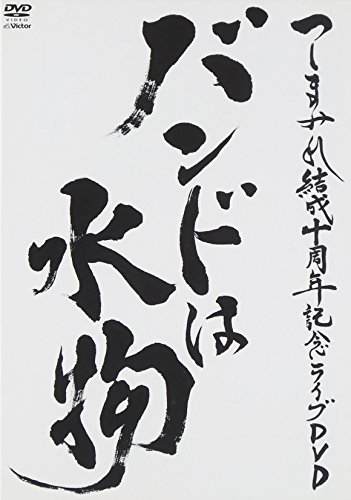 DVD
VIDEO
Victor
つしまみれ結成十周年記念ライブDVD
バンドは
水物